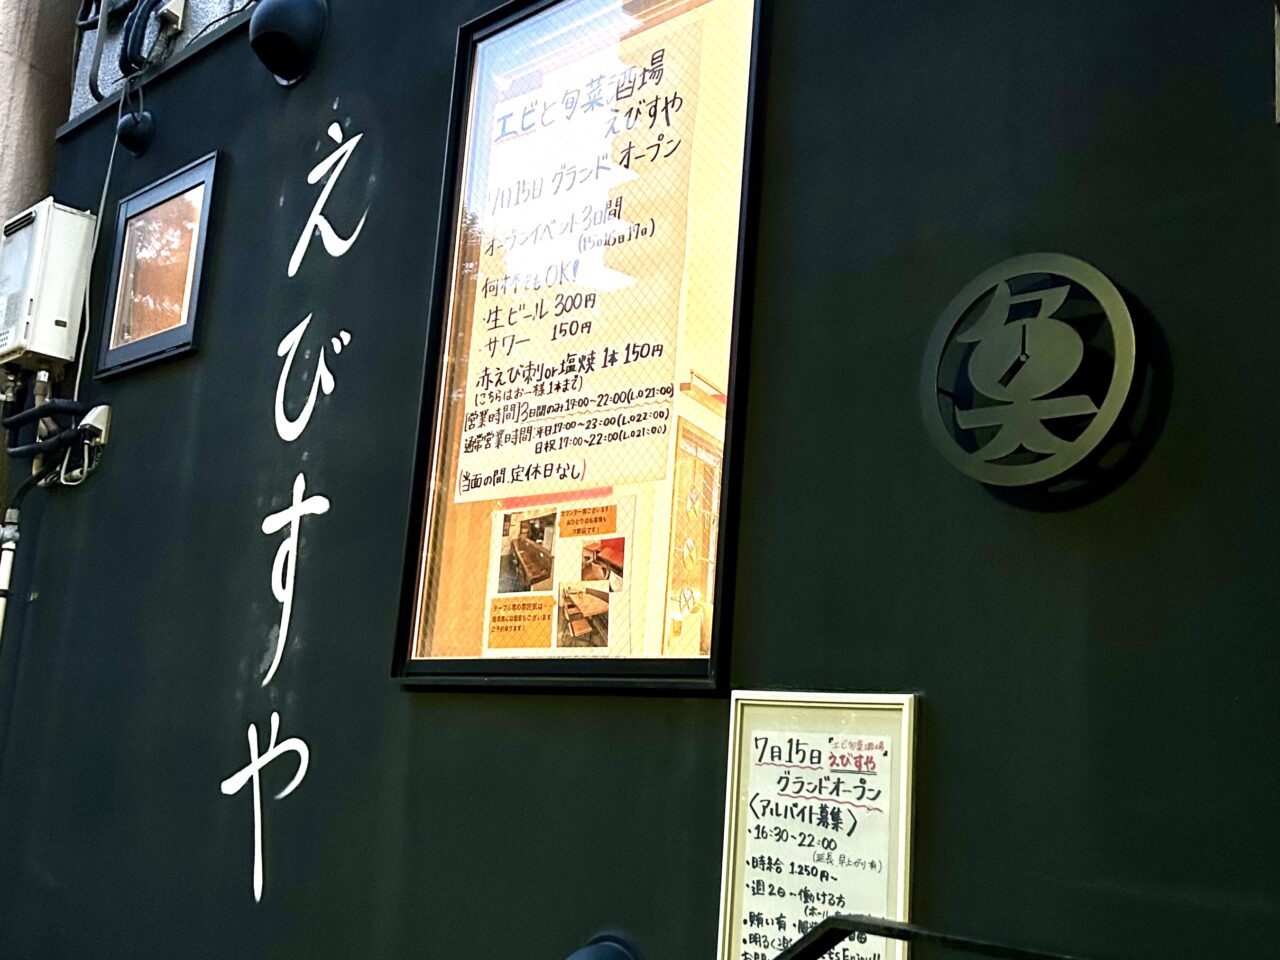 えびすや
エビと旬菜酒場
えびすや
7月15日 グランドオープン
オープンイベント3日間
(15日16日17日)
何杯でもOK!
・生ビール 300円
・サワー 150円
赤えび刺or塩焼 1本 150円
(こちらはお一様1本まで)
[営業時間]3日間のみ17:00~22:00(L.O21:00)
通常営業時間:平日17:00~23:00(L.O22:00)
日祝17:00~22:00(L.O21:00)
(当面の間、定休日なし)
カウンター席ございます
おひとりのお客様も
大歓迎です!
テーブル席の雰囲気は・・
ございます
7月15日 『エビと旬菜酒場』
えびすや
グランドオープン
〈アルバイト募集〉
・16:30~22:00
(延長、早上がり有)
・時給 1.250円~
・週2日~働ける方
(ホール
・賄い有・
・明るく楽
Enjoy!!